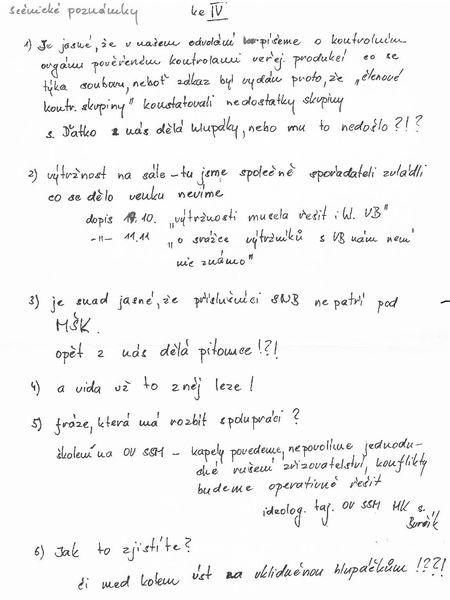 Scénické poznámky ke IV
1) Je jasné, že v našem odvolání píšeme o kontrolním
orgánu pověřeném kontrolami veřej. produkcí co se
týká souboru, neboť zákaz byl vydán proto, že „členové
kontr. skupiny" konstatovali nedostatky skupiny
s. Ďatko z nás dělá hlupáky, nebo mu to nedošlo?!?
2) výtržnost na sále – tu jsme společně spořadateli zvládli
co se dělo venku nevíme
dopis 17.10. „výtržnosti musela řešit i hl. VB"
–"– 11.11 „o srážce výtržníků s VB nám není
nic známo"
3) je snad jasné, že příslušníci SNB nepatří pod
MŠK.
opět z nás dělá pitomce!?!
4) a vida už to z něj leze!
5) fráze, která má rozbít spolupráci?
školení na OV SSM – kapely povedeme, nepovolíme jednodu-
ché rušení zřizovatelství, konflikty
budeme operativně řešit
ideolog. taj. OV SSM MK s.
6) Jak to zjistíte?
či med kolem úst na uklidněnou hlupáčkům!??!